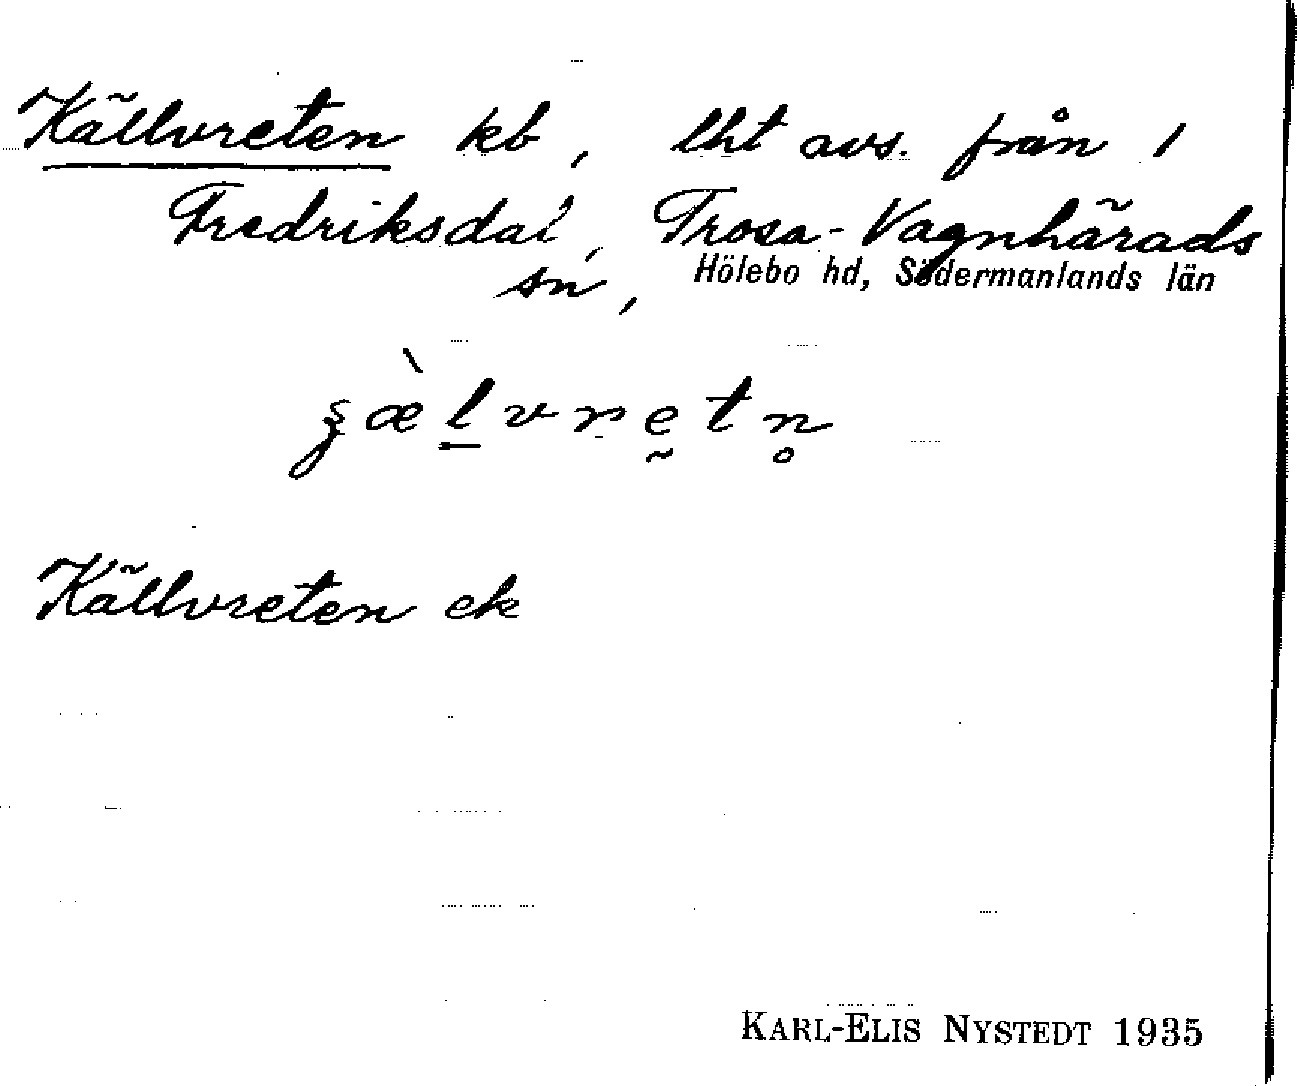 Källvreten kb, lht avs. från 1
Fredriksdal, Trosa-Vagnhärads
sn, Hölebo hd, Södermanlands län
Källvreten ek
KARL-ELIS NYSTEDT 1935